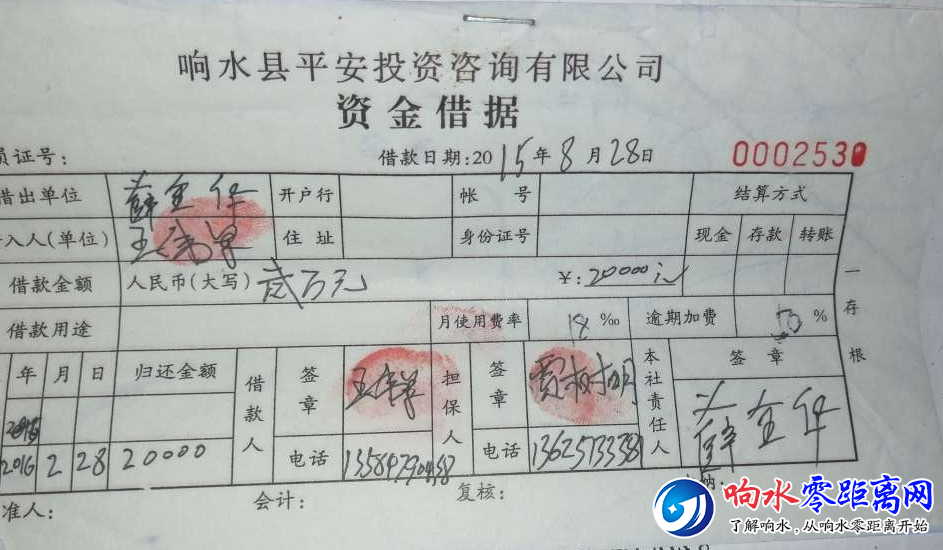 响水县平安投资咨询有限公司
资金借据
员证号： 借款日期：2015年8月28日 0002530
借出单位 薛金仔 开户行 帐号 结算方式
入人（单位） 王 住址 身份证号 现金 存款 转账
借款金额 人民币（大写）贰万元 ￥：20000元
借款用途 月使用费率 18‰ 逾期加费 50%
年 月 日 归还金额 借款人 签章 王 担保人 签章 贾树明 本社责任人 签章 薛金仔
2016 2 28 20000 电话 电话
准人： 会计： 复核： 纳：
一存根
响水零距离网
了解响水，从响水零距离开始